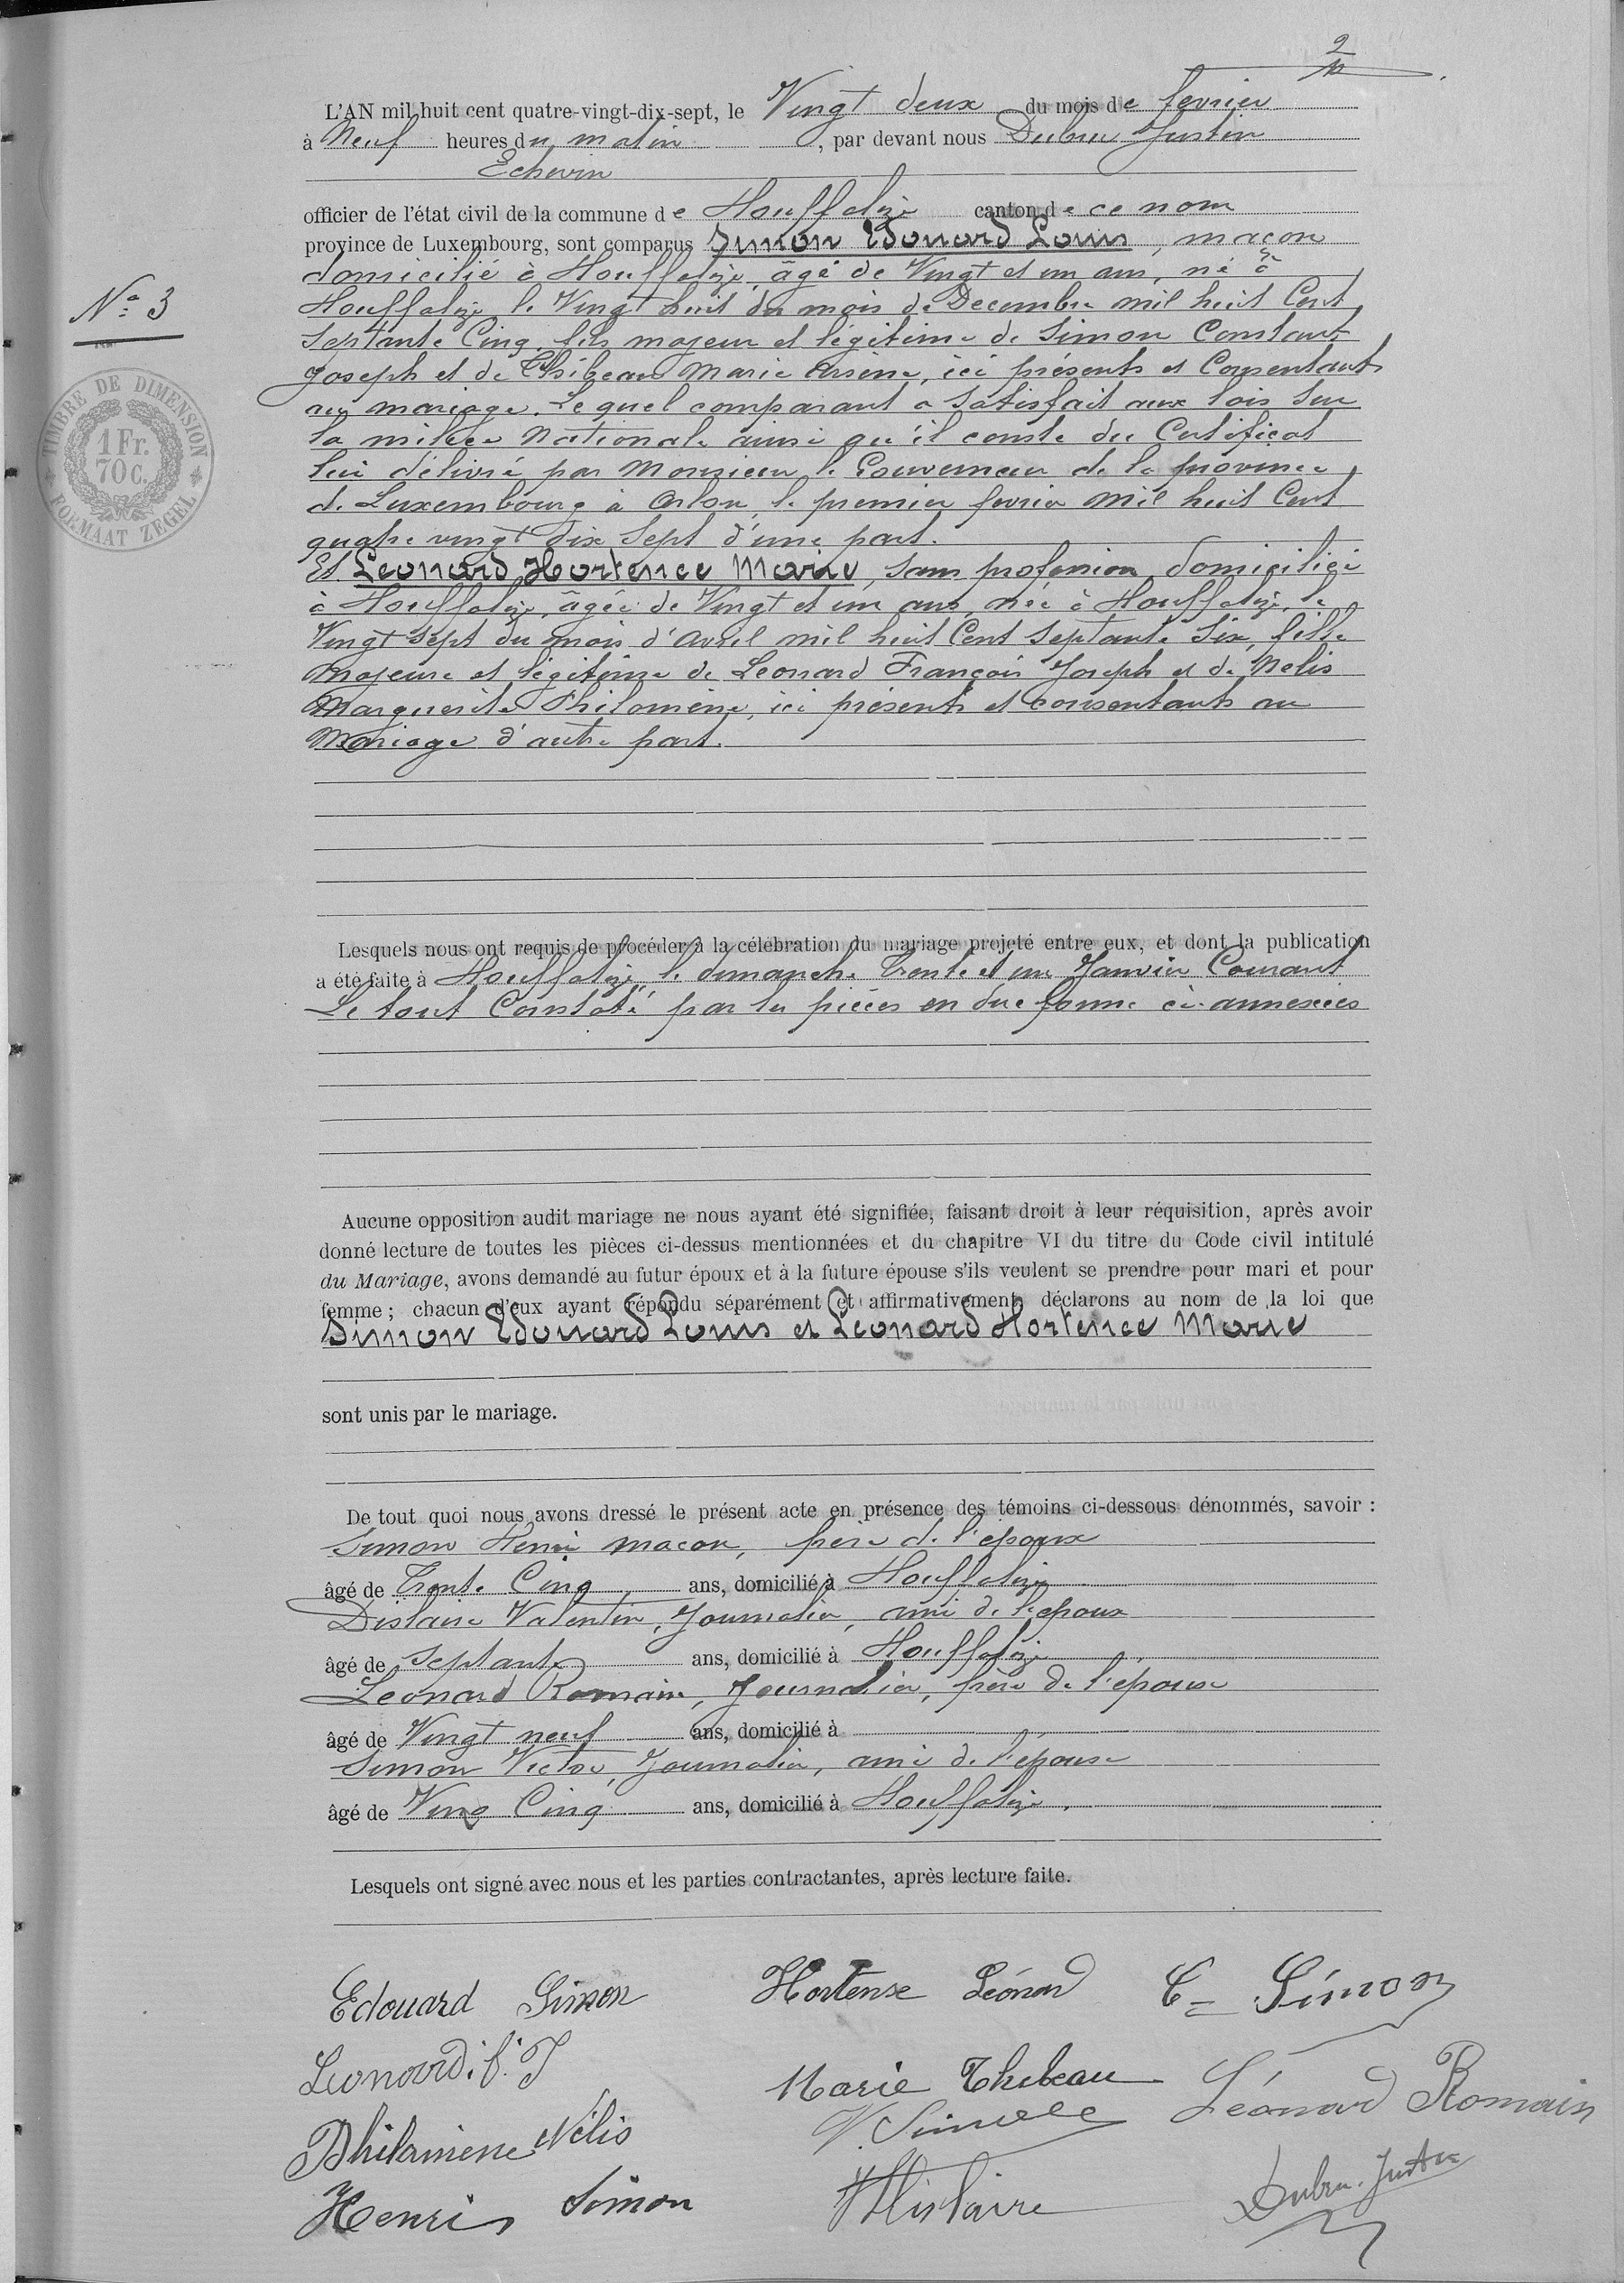 2
L'AN mil huit cent quatre-vingt-dix-sept, le Vingt deux du mois de fevrier
à Neuf heures du matin, par devant nous Dubru Justin
Echevin
officier de l'état civil de la commune de Houffalize canton de ce nom
province de Luxembourg, sont comparus Simon Edouard Louis, maçon
domicilié à Houffalize, âgé de Vingt et un ans, né à
Houffalize le Vingt huit du mois de Decembre mil huit Cent
Septante Cinq, fils majeur et légitime de Simon Constant
Joseph et de Thibeau Marie Arsène, ici présents et Consentants
au mariage. Le quel comparant a satisfait aux lois sur
la milice Nationale ainsi qu'il conste du Certificat
lui délivré par Monsieur le Gouverneur de la province
de Luxembourg à Arlon, le premier fevrier mil huit Cent
quatre vingt dix Sept d'une part.
Et Leonard Hortence Marie, sans profession domiciliée
à Houffalize, âgée de Vingt et un ans, née à Houffalize, le
Vingt sept du mois d'avril mil huit Cent Septante Six, fille
majeure et légitime de Leonard François Joseph et de Nelis
Marguerite Philomène, ici présents et consentants au
Mariage d'autre part.
N° 3
TIMBRE DE DIMENSION
1 Fr.
70 c.
FORMAAT ZEGEL
Lesquels nous ont requis de procéder à la célébration du mariage projeté entre eux, et dont la publication
a été faite à Houffalize, le dimanche Trente et un Janvier Courant
Le tout Constaté par les pièces en due forme ci-annexées
Aucune opposition audit mariage ne nous ayant été signifiée, faisant droit à leur réquisition, après avoir
donné lecture de toutes les pièces ci-dessus mentionnées et du chapitre VI du titre du Code civil intitulé
du Mariage, avons demandé au futur époux et à la future épouse s'ils veulent se prendre pour mari et pour
femme; chacun d'eux ayant répondu séparément et affirmativement, déclarons au nom de la loi que
Simon Edouard Louis et Leonard Hortence Marie
sont unis par le mariage.
De tout quoi nous avons dressé le présent acte en présence des témoins ci-dessous dénommés, savoir :
Simon Henri macon, frère de l'epoux
âgé de Trente Cinq ans, domicilié à Houffalize
Dislaire Valentin, Journalier, ami de l'epoux
âgé de Septante ans, domicilié à Houffalize
Leonard Romain, Journalier, frère de l'epouse
âgé de Vingt neuf ans, domicilié à
Simon Victor, Journalier, ami de l'épouse
âgé de Ving Cinq ans, domicilié à Houffalize.
Lesquels ont signé avec nous et les parties contractantes, après lecture faite.
Edouard Simon Hortense Léonard C= Simon
Leonard. f. J Marie Thibeau Léonard Romain
Philomene Nélis V. Simon
Henri Simon V Dislaire Dubru. Justin